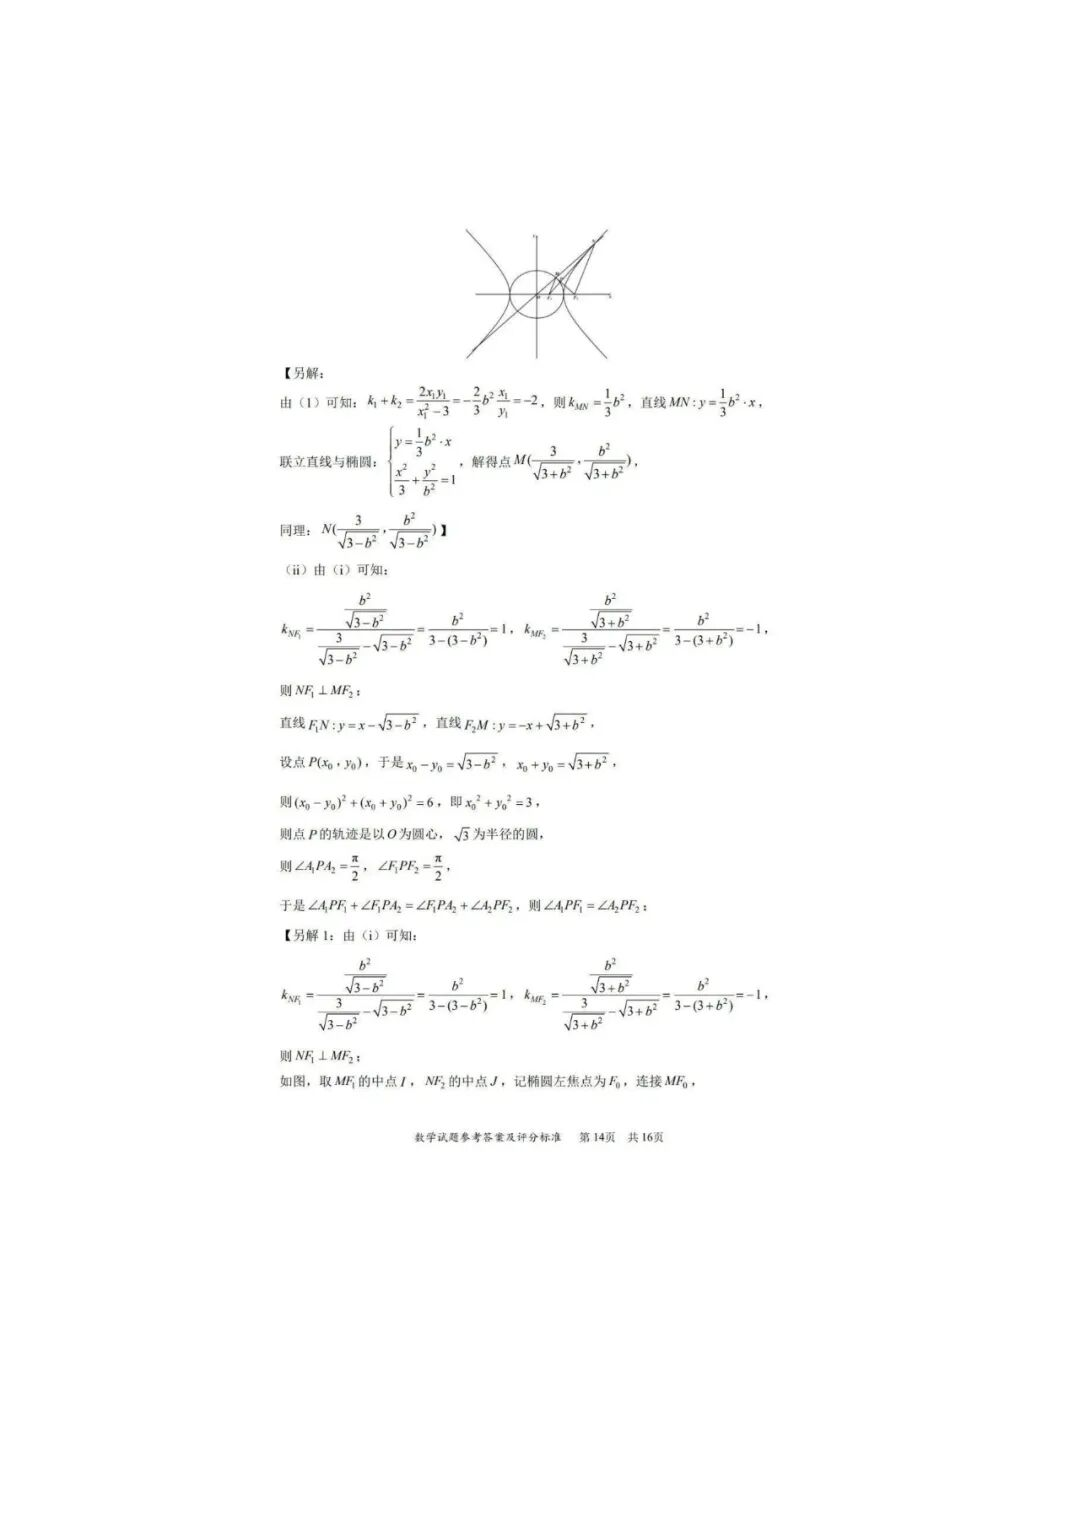 【另解：
由（1）可知：$k_1+k_2=\frac{2x_1y_1}{x_1^2-3}=-\frac{2}{3}b^2\frac{x_1}{y_1}=-2$，则$k_{MN}=\frac{1}{3}b^2$，直线$MN:y=\frac{1}{3}b^2\cdot x$，
联立直线与椭圆：$\begin{cases}y=\frac{1}{3}b^2\cdot x\\\frac{x^2}{3}+\frac{y^2}{b^2}=1\end{cases}$，解得点$M(\frac{3}{\sqrt{3+b^2}},\frac{b^2}{\sqrt{3+b^2}})$，
同理：$N(\frac{3}{\sqrt{3-b^2}},\frac{b^2}{\sqrt{3-b^2}})$】
（ii）由（i）可知：
$k_{NF_1}=\frac{\frac{b^2}{\sqrt{3-b^2}}}{\frac{3}{\sqrt{3-b^2}}-\sqrt{3-b^2}}=\frac{b^2}{3-(3-b^2)}=1$，$k_{MF_2}=\frac{\frac{b^2}{\sqrt{3+b^2}}}{\frac{3}{\sqrt{3+b^2}}-\sqrt{3+b^2}}=\frac{b^2}{3-(3+b^2)}=-1$，
则$NF_1\perp MF_2$；
直线$F_1N:y=x-\sqrt{3-b^2}$，直线$F_2M:y=-x+\sqrt{3+b^2}$，
设点$P(x_0,y_0)$，于是$x_0-y_0=\sqrt{3-b^2}$，$x_0+y_0=\sqrt{3+b^2}$，
则$(x_0-y_0)^2+(x_0+y_0)^2=6$，即$x_0^2+y_0^2=3$，
则点$P$的轨迹是以$O$为圆心，$\sqrt{3}$为半径的圆，
则$\angle A_1PA_2=\frac{\pi}{2}$，$\angle F_1PF_2=\frac{\pi}{2}$，
于是$\angle A_1PF_1+\angle F_1PA_2=\angle F_1PA_2+\angle A_2PF_2$，则$\angle A_1PF_1=\angle A_2PF_2$；
【另解1：由（i）可知：
$k_{NF_1}=\frac{\frac{b^2}{\sqrt{3-b^2}}}{\frac{3}{\sqrt{3-b^2}}-\sqrt{3-b^2}}=\frac{b^2}{3-(3-b^2)}=1$，$k_{MF_2}=\frac{\frac{b^2}{\sqrt{3+b^2}}}{\frac{3}{\sqrt{3+b^2}}-\sqrt{3+b^2}}=\frac{b^2}{3-(3+b^2)}=-1$，
则$NF_1\perp MF_2$；
如图，取$MF_1$的中点$I$，$NF_2$的中点$J$，记椭圆左焦点为$F_0$，连接$MF_0$，
数学试题参考答案及评分标准 第14页 共16页